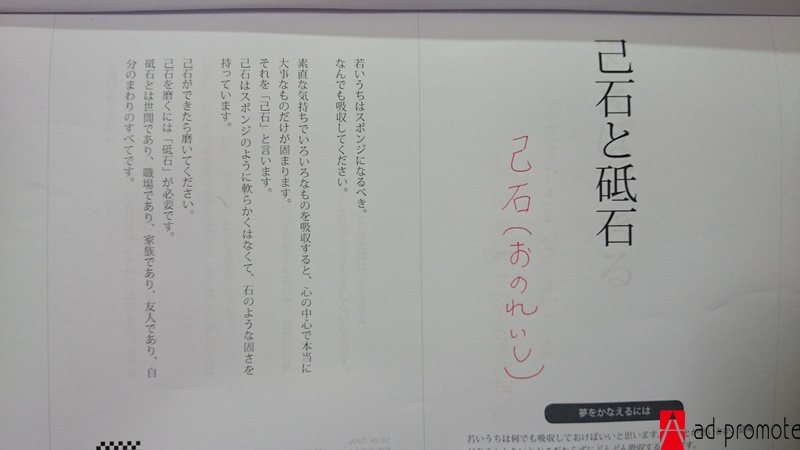 己石と砥石
己石（おのれいし）
若いうちはスポンジになるべき。
なんでも吸収してください。
素直な気持ちでいろいろなものを吸収すると、心の中心で本当に
大事なものだけが固まります。
それを「己石」と言います。
己石はスポンジのように軟らかくはなくて、石のような固さを
持っています。
己石ができたら磨いてください。
己石を磨くには「砥石」が必要です。
砥石とは世間であり、職場であり、家族であり、友人であり、自
分のまわりのすべてです。
夢をかなえるには
若いうちは何でも吸収しておけばいいと思います
ad-promote